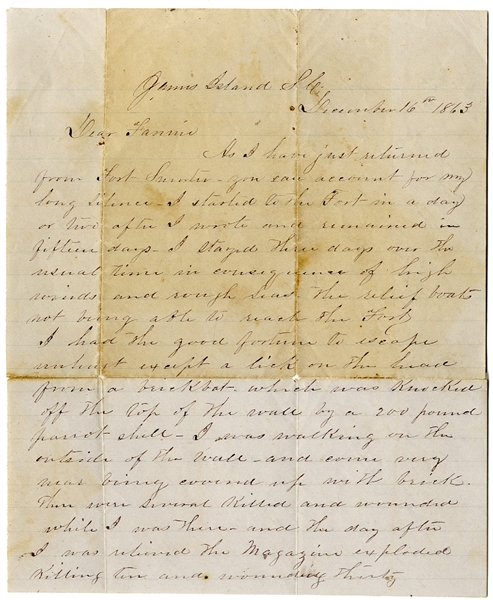 James Island S. C.
December 16th 1863
Dear Fannie
As I have just returned
from Fort Sumter - you can account for my
long silence - I started to the Fort in a day
or two after I wrote and remained in
fifteen days - I stayed three days over the
usual time in consequence of high
winds and rough seas the relief boats
not being able to reach the Fort
I had the good fortune to escape
unhurt except a lick on the head
from a brickbat which was knocked
off the top of the wall by a 200 pound
parrot shell - I was walking on the
outside of the wall - and come very
near being covered up with brick.
There were several killed and wounded
while I was there - and the day after
I was relieved the Magazine exploded
killing ten and wounding thirty